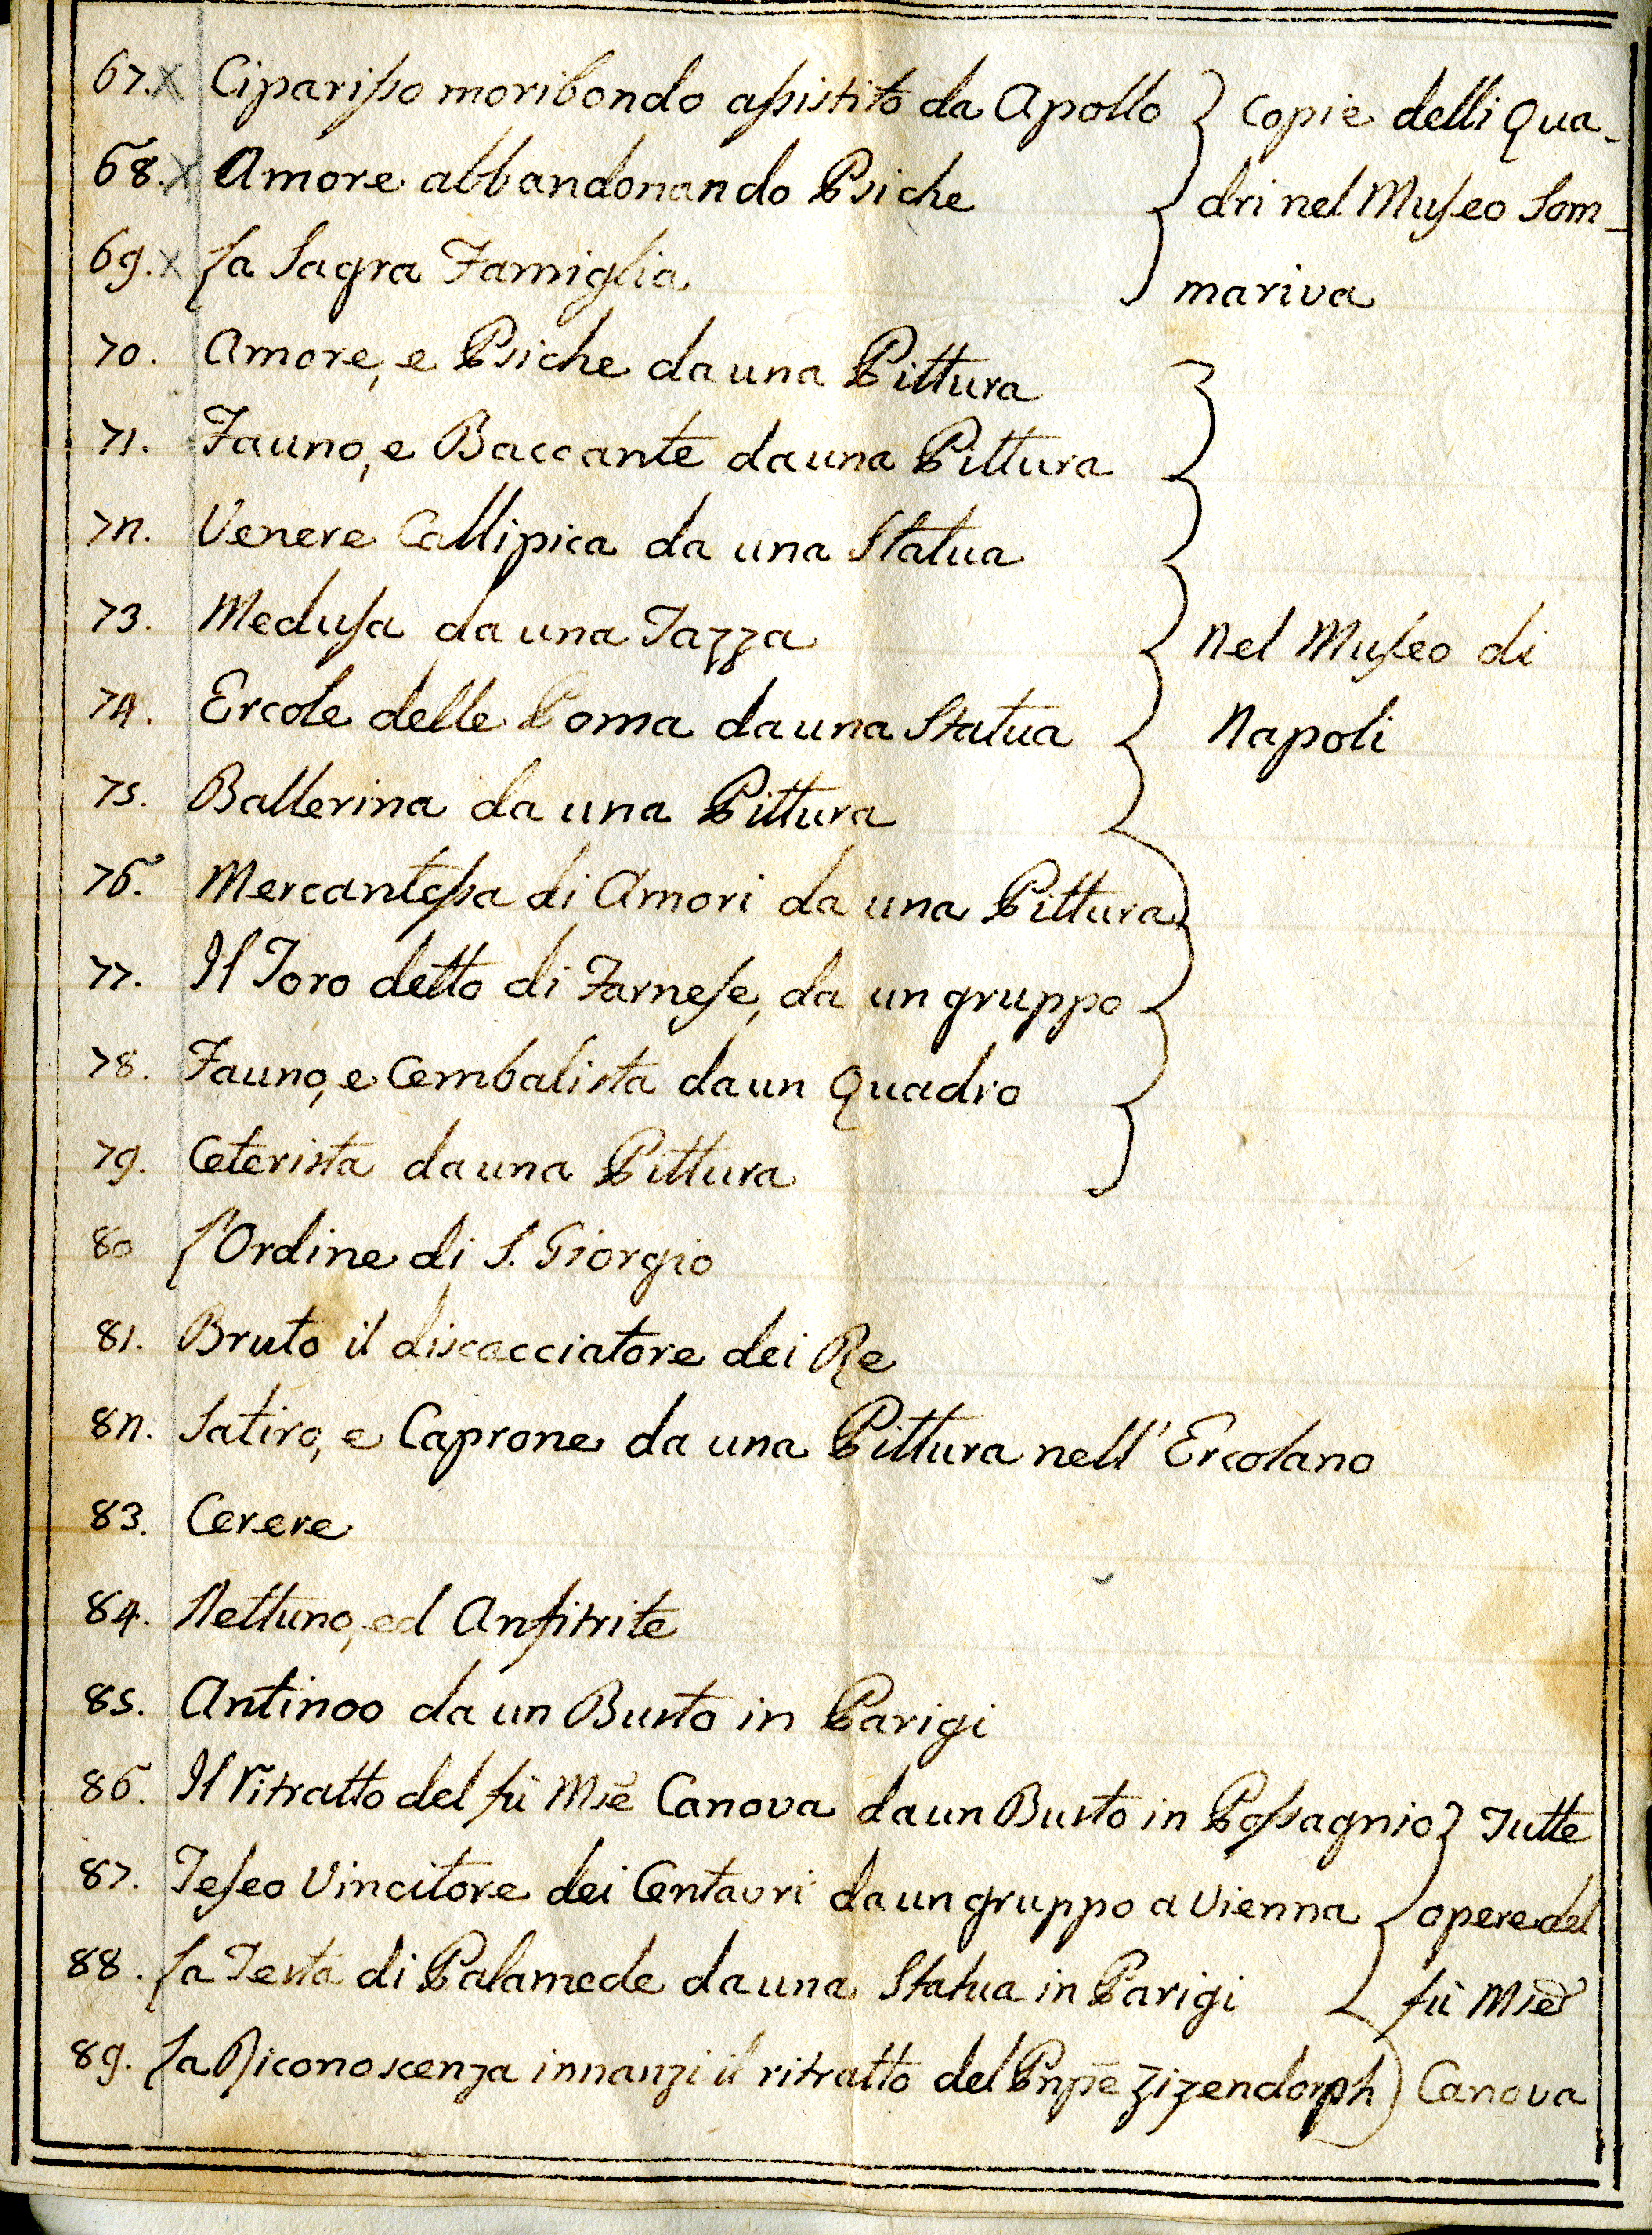 67.x Ciparisso moribondo assistito da Apollo } Copie delli Qua-
68.x Amore abbandonando Psiche dri nel Museo Som-
69.x La Sagra Famiglia mariva
70. Amore, e Psiche da una Pittura
71. Fauno, e Baccante da una Pittura
72. Venere Callipica da una Statua
73. Medusa da una Tazza nel Museo di
74. Ercole delle Poma da una Statua Napoli
75. Ballerina da una Pittura
76. Mercantessa di Amori da una Pittura
77. Il Toro detto di Farnese, da un gruppo
78. Fauno, e Cembalista da un Quadro
79. Ceterista da una Pittura
80 L'Ordine di S. Giorgio
81. Bruto il discacciatore dei Re
82. Satiro, e Caprone da una Pittura nell'Ercolano
83. Cerere
84. Nettuno, ed Anfitrite
85. Antinoo da un Busto in Parigi
86. Il ritratto del fù Mse Canova da un Busto in Possagnio } Tutte
87. Teseo Vincitore dei Centauri da un gruppo a Vienna opere del
88. La Testa di Palamede da una Statua in Parigi fù Mse
89. La Riconoscenza innanzi il ritratto del Pnpe Zizendorph Canova